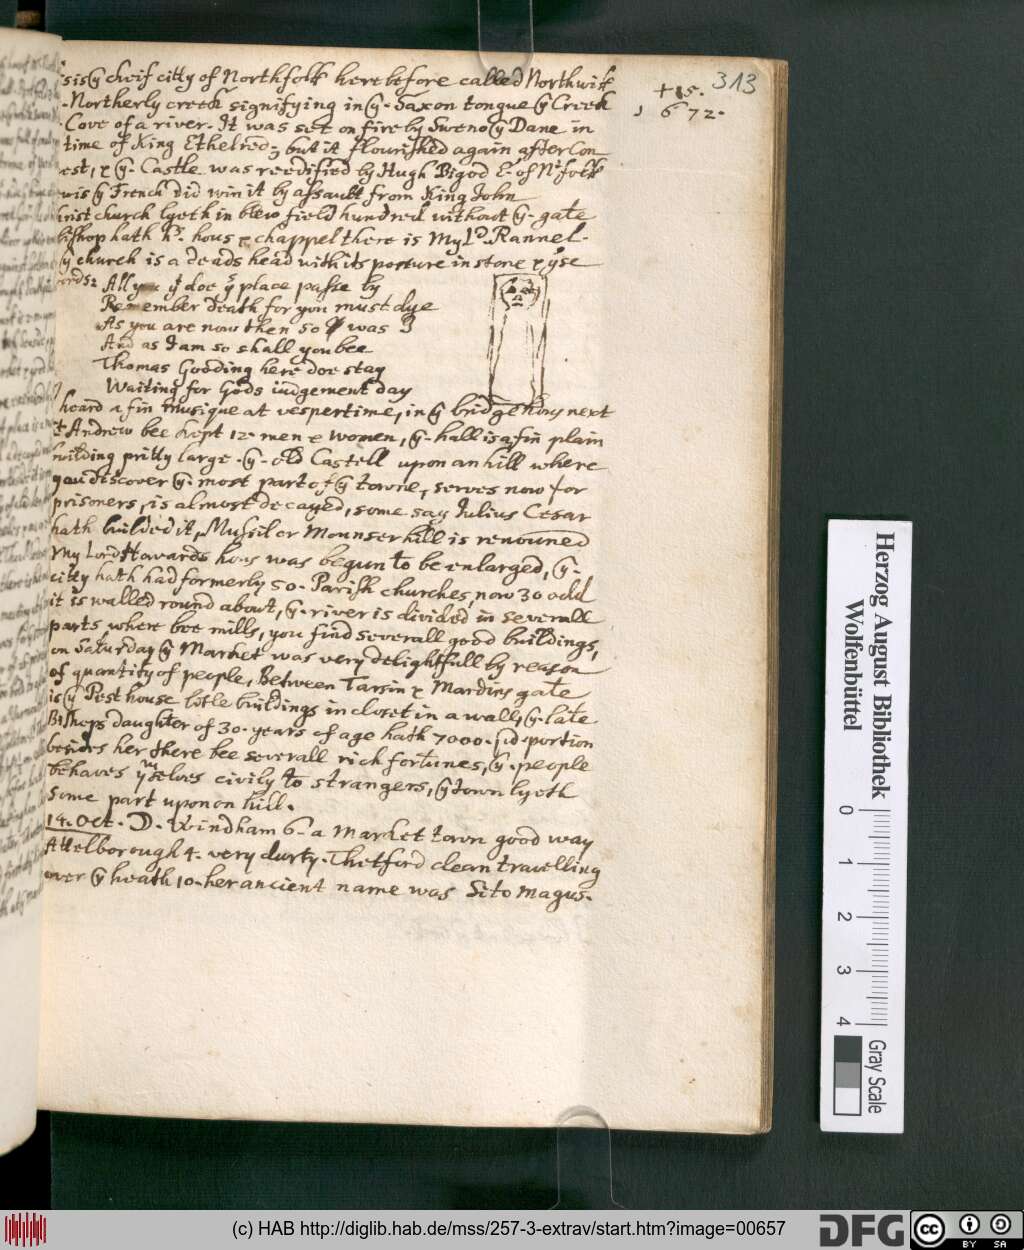 313
+15.
1672.
sis ye cheif citty of Northfolk here before called Northwik
Northerly creek signifying in ye Saxon tongue ye Creek
Cove of a river. It was set on fire by Sweno ye Dane in
time of King Ethelred; but it flourished again after Con
est, & ye Castle was reedified by Hugh Bigod E. of Ntfolk
wis ye French did win it by assault from King John
hrist church lyeth in blew field hundred without ye gate
bishop hath hs hous & chappel there is My Ld Rannel.
ye church is a deads head with its posture in stone & yse
ords:
All you yt doe ys place passe by
Remember death for you must dye
As you are now then so was I
And as I am so shall you bee
Thomas Gooding here doe stay
Waiting for Gods iudgement day
I heard a fin Musique at vespertime, in ye bridge hous next
St Andrew bee kept 12. men & women, ye hall is a fin plain
building pritty large. ye old Castell upon an hill where
you discover ye most part of ye towne, serves now for
prisoners, is almost decayed, some say Iulius Cesar
hath builded it, Mushil or Mounser hill is renouned
My Lord Howards hous was begun to be enlarged, ye
citty hath had formerly 50. Parish churches, now 30 odd
it is walled round about, ye river is divided in severall
parts where bee mills, you find severall good buildings,
on Saturday ye Market was very delightfull by reason
of quantity of people, Between Tarsin & Mardins gate
is ye Pest house litle buildings in closet in a wall, ye late
Bishops daughter of 30. years of age hath 7000. portion
besides her there bee severall rich fortunes, ye people
behaves ymselves civily to strangers, ye town lyeth
some part upon on hill.
14. Oct. D. Windham 6. a Market town good way
Attelborough 4. very durty. Thetford clean travelling
over ye heath 10. her ancient name was Sitomagus.
Herzog August Bibliothek
Wolfenbüttel
0 1 2 3 4
Gray Scale
(c) HAB http://diglib.hab.de/mss/257-3-extrav/start.htm?image=00657
DFG
cc BY SA